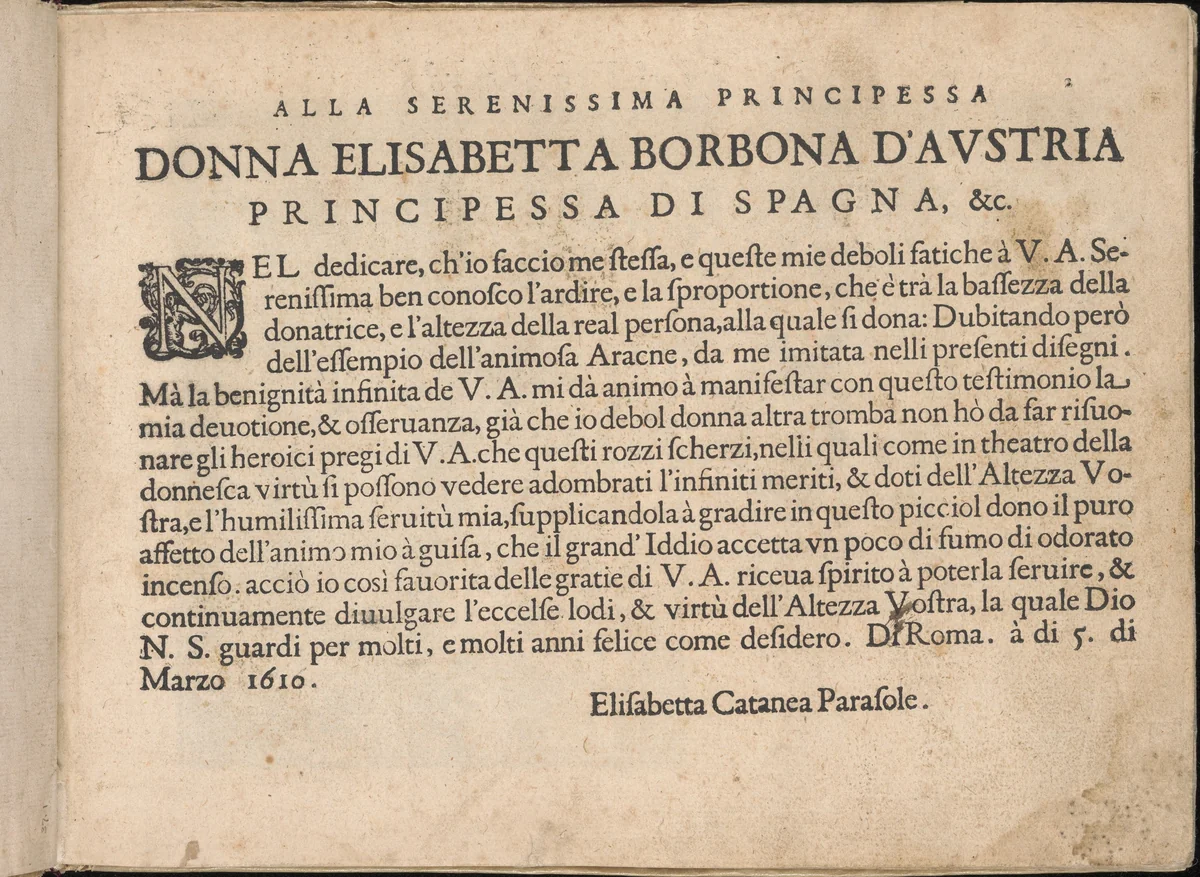 ALLA SERENISSIMA PRINCIPESSA
DONNA ELISABETTA BORBONA D'AVSTRIA
PRINCIPESSA DI SPAGNA, &c.
NEL dedicare, ch'io faccio me ſteſſa, e queſte mie deboli fatiche à V. A. Se-
reniſſima ben conoſco l'ardire, e la ſproportione, che è trà la baſſezza della
donatrice, e l'altezza della real perſona, alla quale ſi dona: Dubitando però
dell'eſſempio dell'animoſa Aracne, da me imitata nelli preſenti diſegni.
Mà la benignità infinita de V. A. mi dà animo à manifeſtar con queſto teſtimonio la
mia deuotione, & oſſeruanza, già che io debol donna altra tromba non hò da far riſuo-
nare gli heroici pregi di V. A. che queſti rozzi ſcherzi, nelli quali come in theatro della
donneſca virtù ſi poſſono vedere adombrati l'infiniti meriti, & doti dell'Altezza Vo-
ſtra, e l'humiliſſima ſeruitù mia, ſupplicandola à gradire in queſto picciol dono il puro
affetto dell'animo mio à guiſa, che il grand' Iddio accetta vn poco di fumo di odorato
incenſo. acciò io così fauorita delle gratie di V. A. riceua ſpirito à poterla ſeruire, &
continuamente diuulgare l'eccelſe lodi, & virtù dell'Altezza Voſtra, la quale Dio
N. S. guardi per molti, e molti anni felice come deſidero. Di Roma. à di 5. di
Marzo 1610.
Eliſabetta Catanea Paraſole.